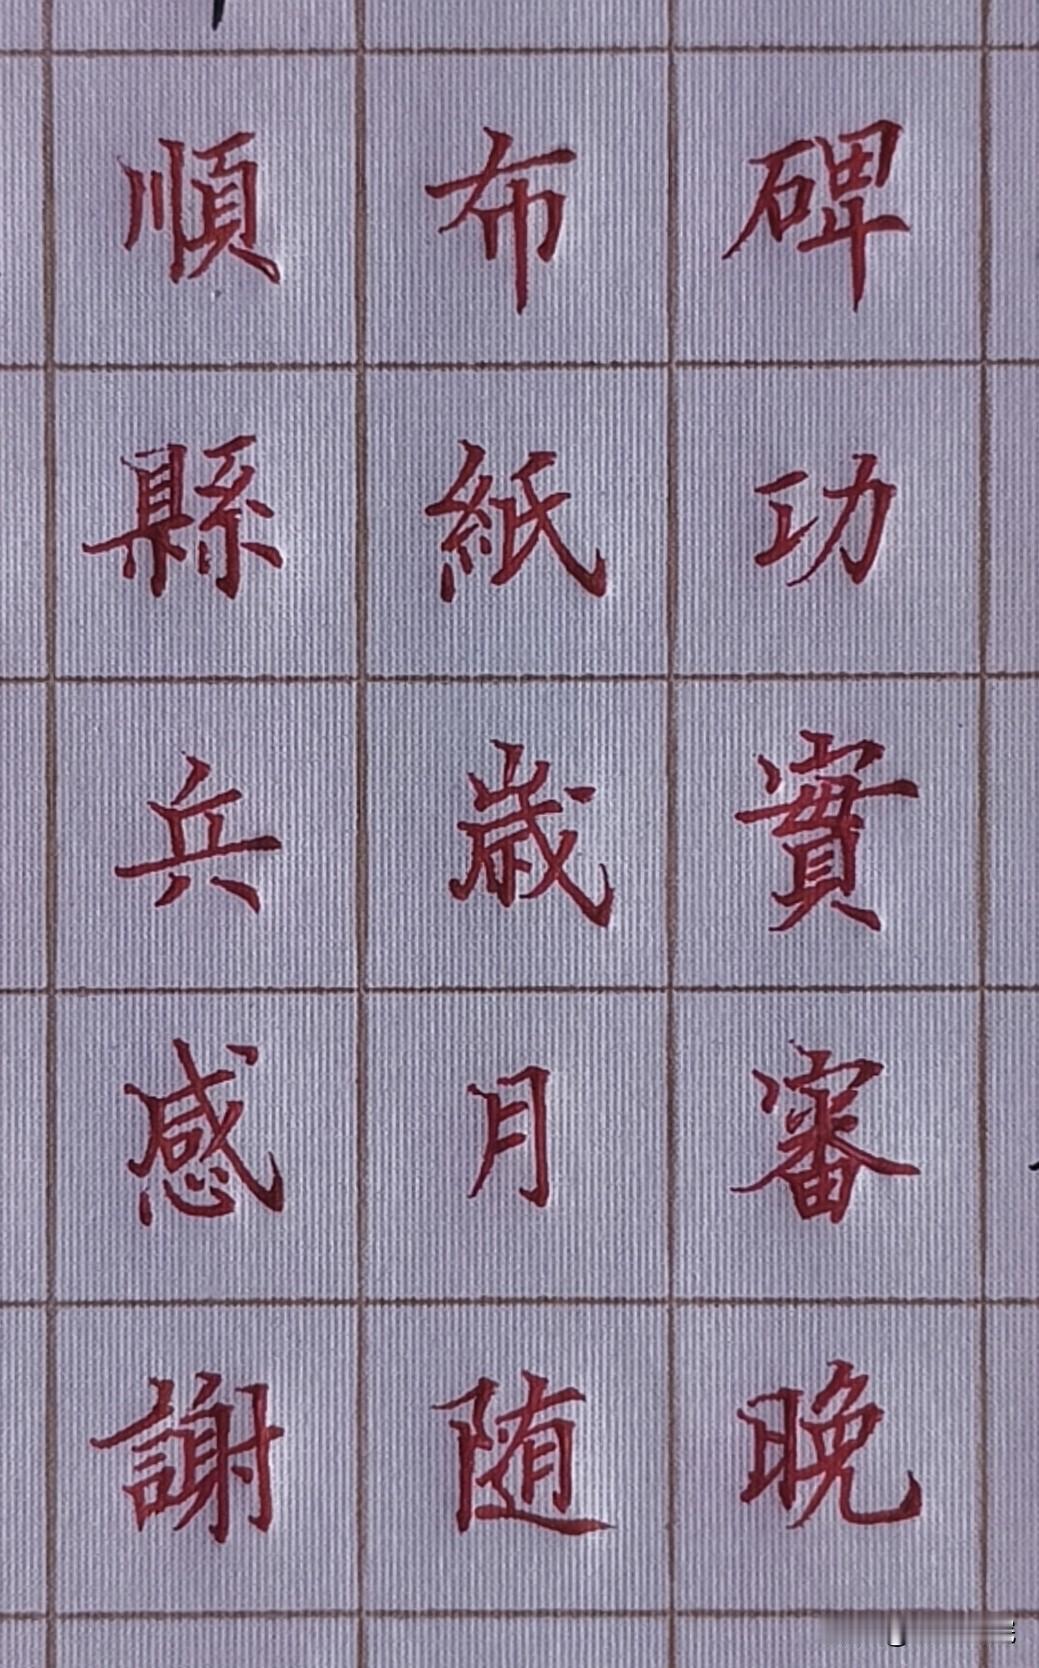 碑功實審晚
布紙歲月随
順縣兵感謝